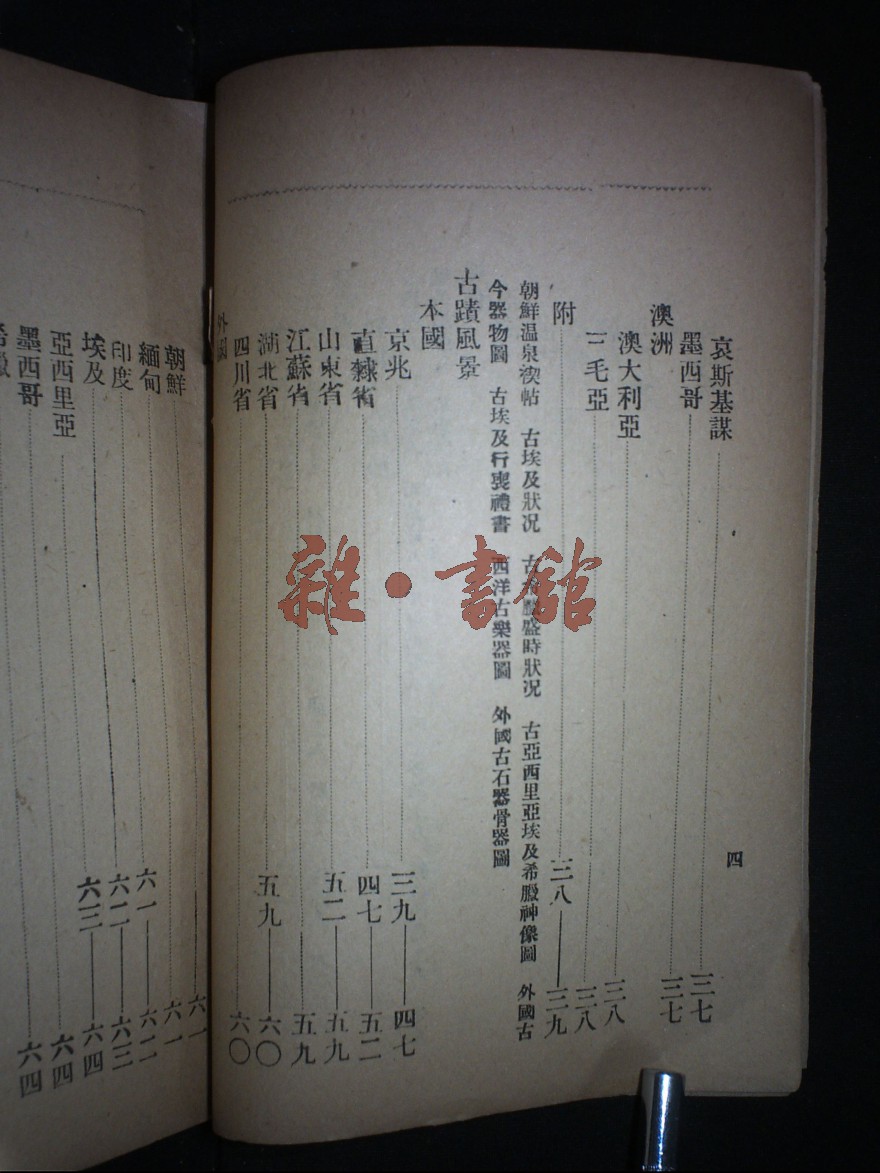 四
哀斯基謀 三七
墨西哥 三七
澳洲
澳大利亞 三八
三毛亞 三八
附 三八—三九
朝鮮温泉禊帖 古埃及狀况 古希臘盛時狀况 古亞西里亞埃及希臘神像圖 外國古
今器物圖 古埃及行喪禮書 西洋古樂器圖 外國古石器骨器圖
古蹟風景
本國
京兆 三九—四七
直隸省 四七—五二
山東省 五二—五九
江蘇省 五九
湖北省 五九—六〇
四川省 六〇
外國
朝鮮 六一
緬甸 六一
印度 六一—六二
埃及 六二—六三
亞西里亞 六三—六四
墨西哥 六四
希臘 六四
雜·書館